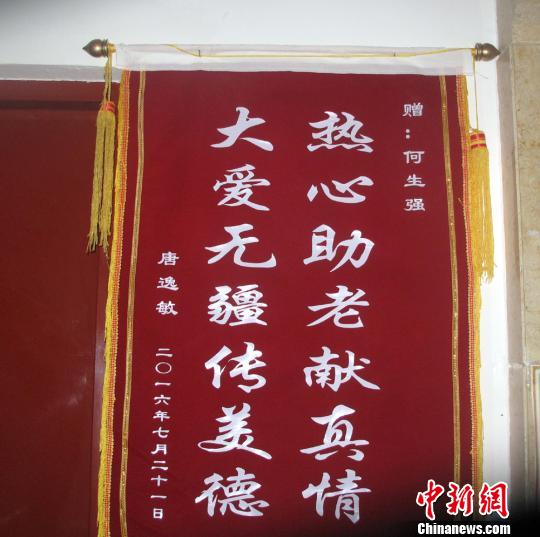 赠：何生强
热心助老献真情
大爱无疆传美德
唐逸敏 二〇一六年七月二十一日
中新网
Chinanews.com